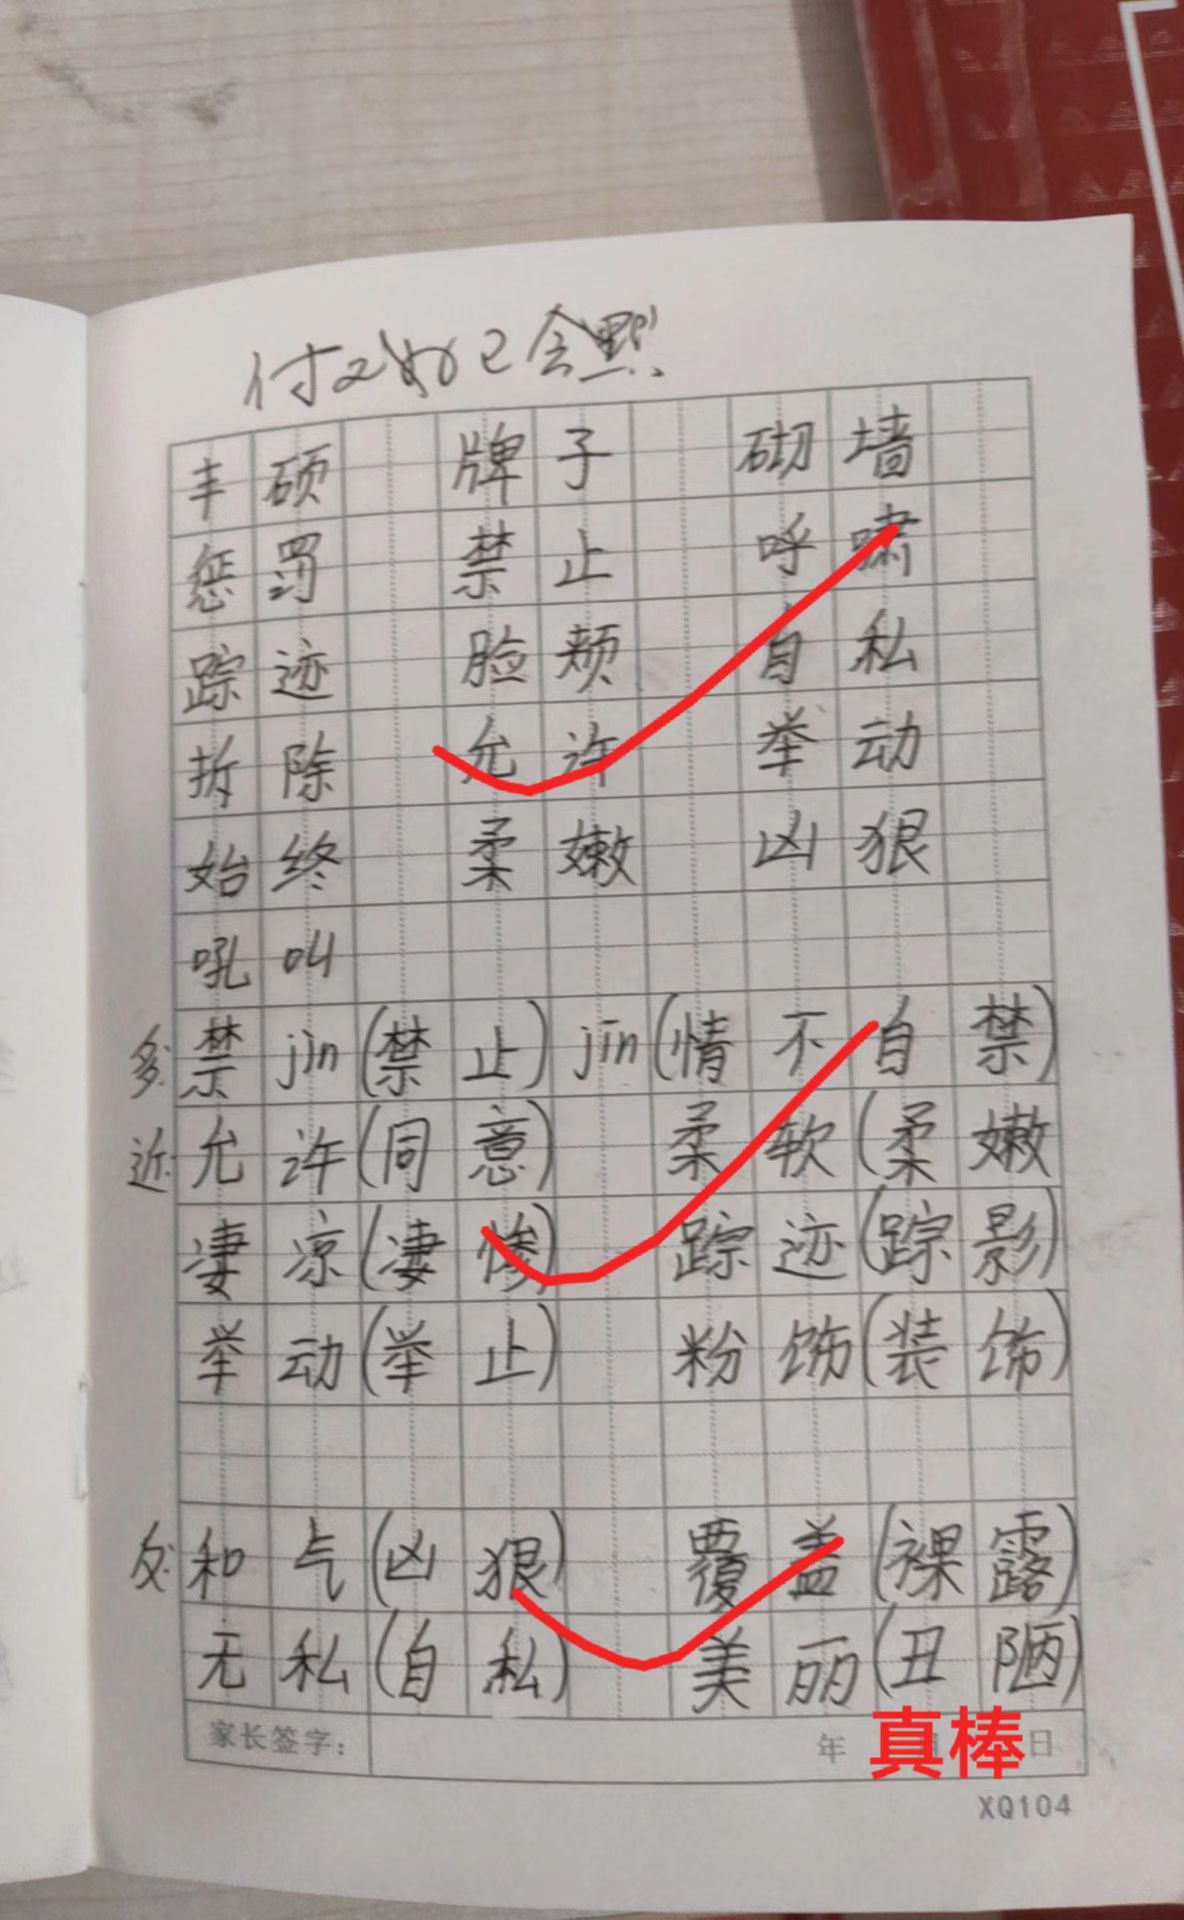 付 已会默
丰硕 牌子 砌墙
惩罚 禁止 呼啸
踪迹 脸颊 自私
拆除 允许 举动
始终 柔嫩 凶狠
吼叫
多: 禁 jìn (禁止) jīn (情不自禁)
近: 允许 (同意) 柔软 (柔嫩
凄凉 (凄惨) 踪迹 (踪影)
举动 (举止) 粉饰 (装饰)
反: 和气 (凶狠) 覆盖 (裸露)
无私 (自私) 美丽 (丑陋)
家长签字: 年 日
真棒
XQ104